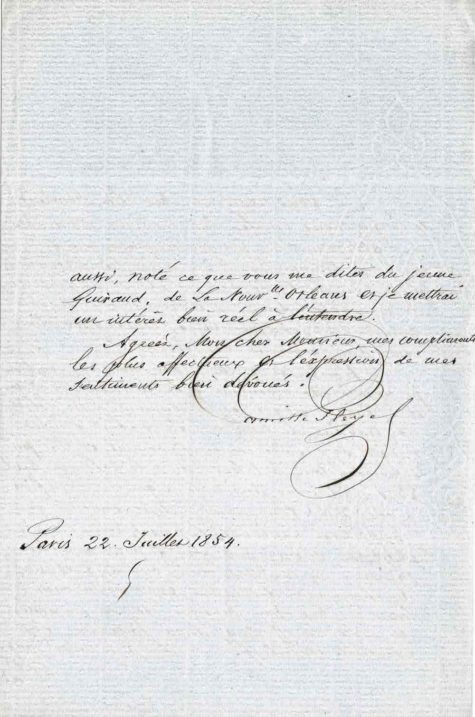 aussi, noté ce que vous me dites du jeune
Guiraud, de La Nouv.lle Orléans et je mettrai
un intérêt bien réel à l'entendre.
Agréez, Mon cher Monsieur, mes compliments
les plus affectueux et l'expression de mes
Sentiments bien dévoués.
Camille Pleyel
Paris 22. Juillet 1854.